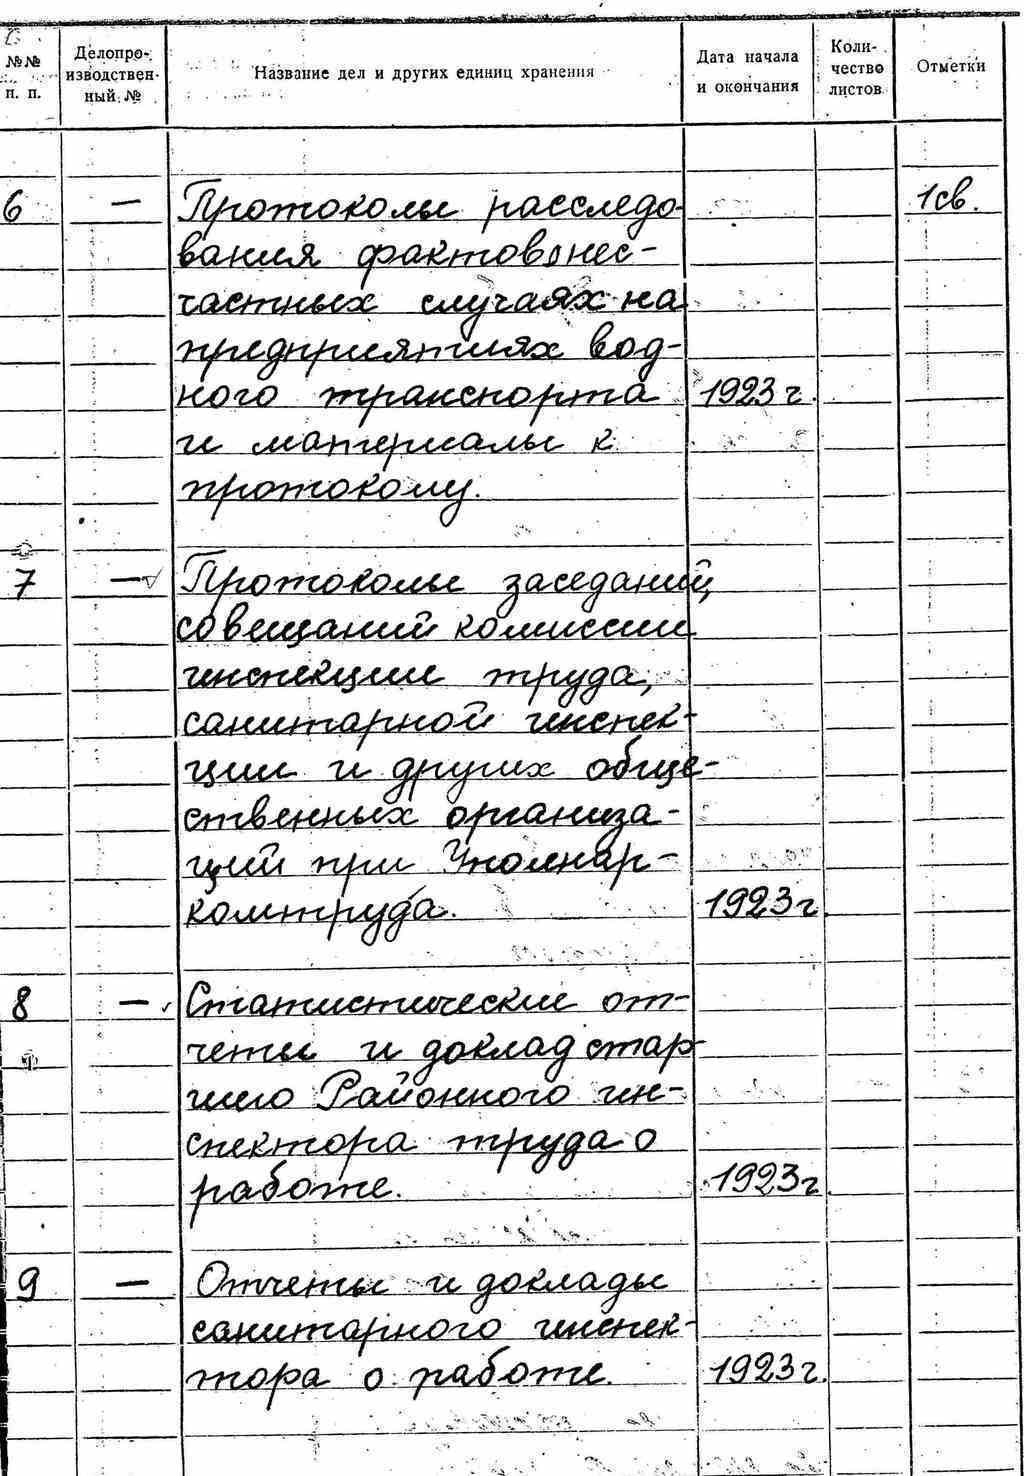 №№ п. п.
Делопро-
изводствен-
ный №
Название дел и других единиц хранения
Дата начала
и окончания
Коли-
чество
листов
Отметки
6 — Протоколы расследо- 1св.
вания фактов о нес-
частных случаях на
предприятиях вод-
ного транспорта 1923 г.
и материалы к
протоколу.
7 — Протоколы заседаний,
совещаний комиссии
инспекции труда,
санитарной инспек-
ции и других обще-
ственных организа-
ций при Уполнар-
комтруда. 1923 г.
8 — Статистические от-
четы и доклад стар-
шего Районного ин-
спектора труда о
работе. 1923 г.
9 — Отчеты и доклады
санитарного инспек-
тора о работе. 1923 г.